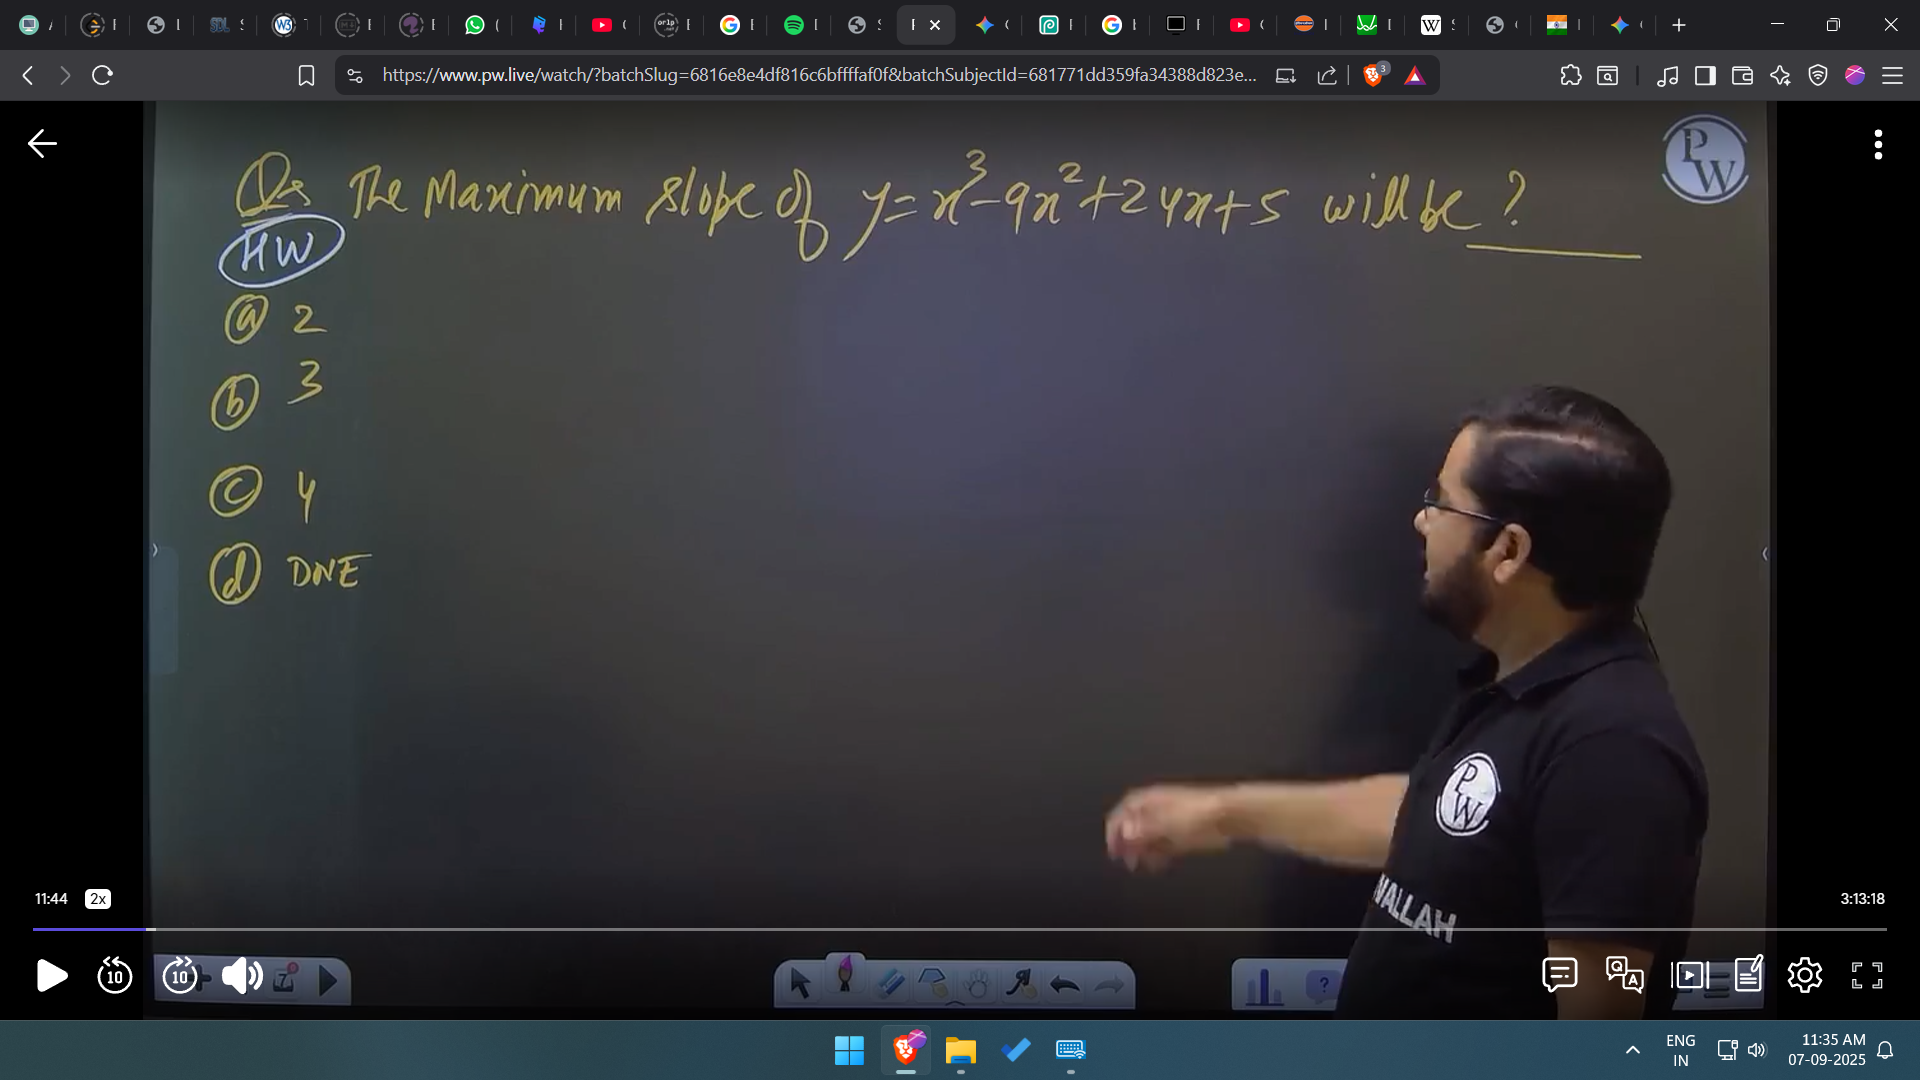 https://www.pw.live/watch/?batchSlug=6816e8e4df816c6bffffaf0f&batchSubjectId=681771dd359fa34388d823e...
3
PW
Qs The Maximum slope of y=x³-9x²+24x+5 will be ____?
HW
(a) 2
(b) 3
(c) 4
(d) DNE
PW
WALLAH
11:44 2x
3:13:18
10 10
ENG
IN
11:35 AM
07-09-2025